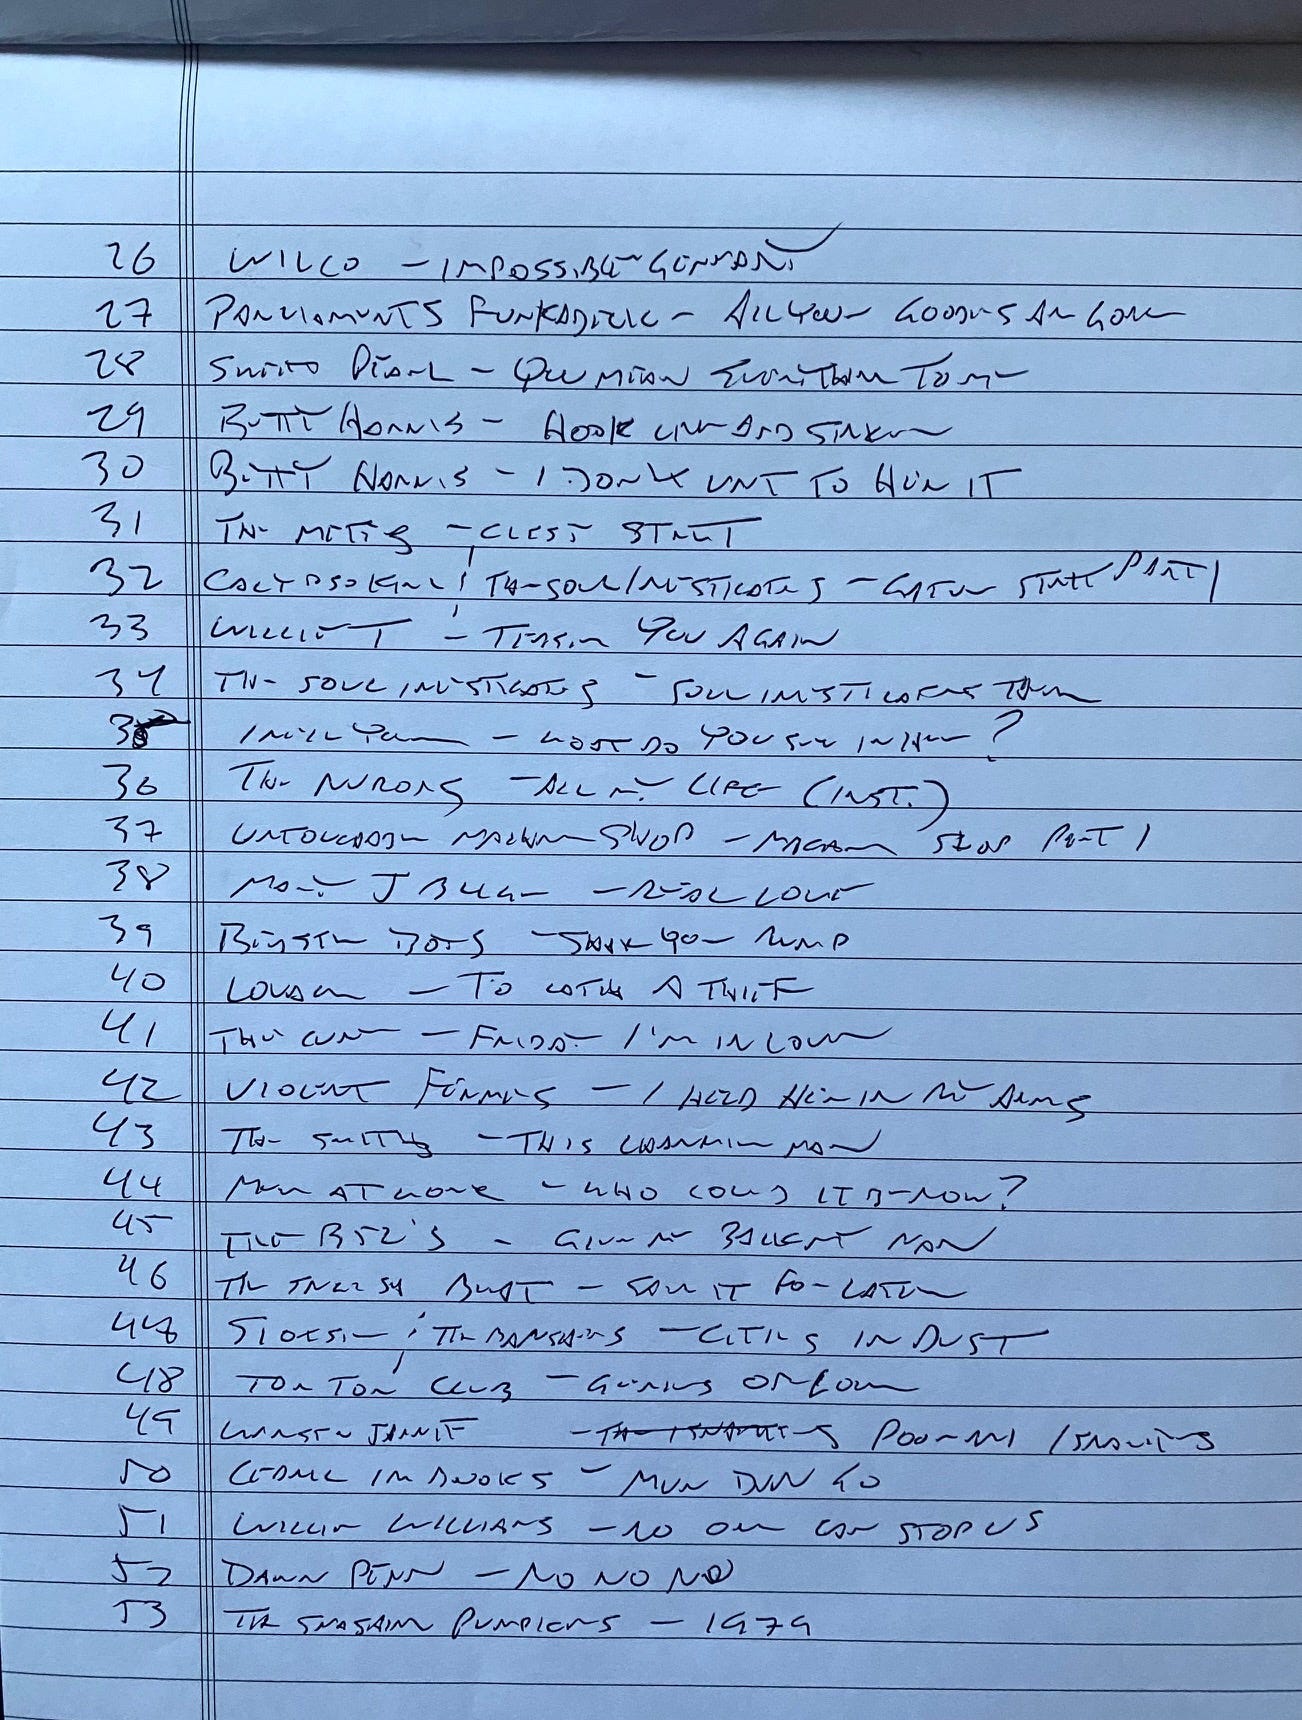 26 WILCO - IMPOSSIBLE GERMANY
27 PARLIAMENTS FUNKADELIC - ALL YOUR GOODIES ARE GONE
28 PEARL - YOU MEAN EVERYTHING TO ME
29 BETTY HARRIS - HOOK LINE AND SINKER
30 BETTY HARRIS - I DON'T WANT TO HEAR IT
31 THE METERS - STREET
32 CALYPSO KING & THE SOUL INVESTIGATORS - STREET PART 1
33 WILLIE T - TEASIN YOU AGAIN
34 THE SOUL INVESTIGATORS - SOUL INVESTIGATORS THEME
35 - WHAT DO YOU SEE IN HER?
36 THE - ALL MY LIFE (INST.)
37 UNTOUCHABLE MACHINE SHOP - MACHINE SHOP PART 1
38 MARY J BLIGE - REAL LOVE
39 - SHAKE YOUR RUMP
40 - TO CATCH A THIEF
41 THE CURE - FRIDAY I'M IN LOVE
42 VIOLENT FEMMES - I HELD HER IN MY ARMS
43 THE SMITHS - THIS CHARMIN MAN
44 MEN AT WORK - WHO COULD IT BE NOW?
45 THE B52'S - GIVE ME BACK MY MAN
46 THE ENGLISH BEAT - SAVE IT FOR LATER
47 SIOUXSIE & THE BANSHEES - CITIES IN DUST
48 TOM TOM CLUB - GENIUS OF LOVE
49 - THE ISRAELITES POOR ME ISRAELITES
50 CEDRIC IM BROOKS - MUN DUN GO
51 WILLIE WILLIAMS - NO ONE CAN STOP US
52 DAWN PENN - NO NO NO
53 THE SMASHING PUMPKINS - 1979